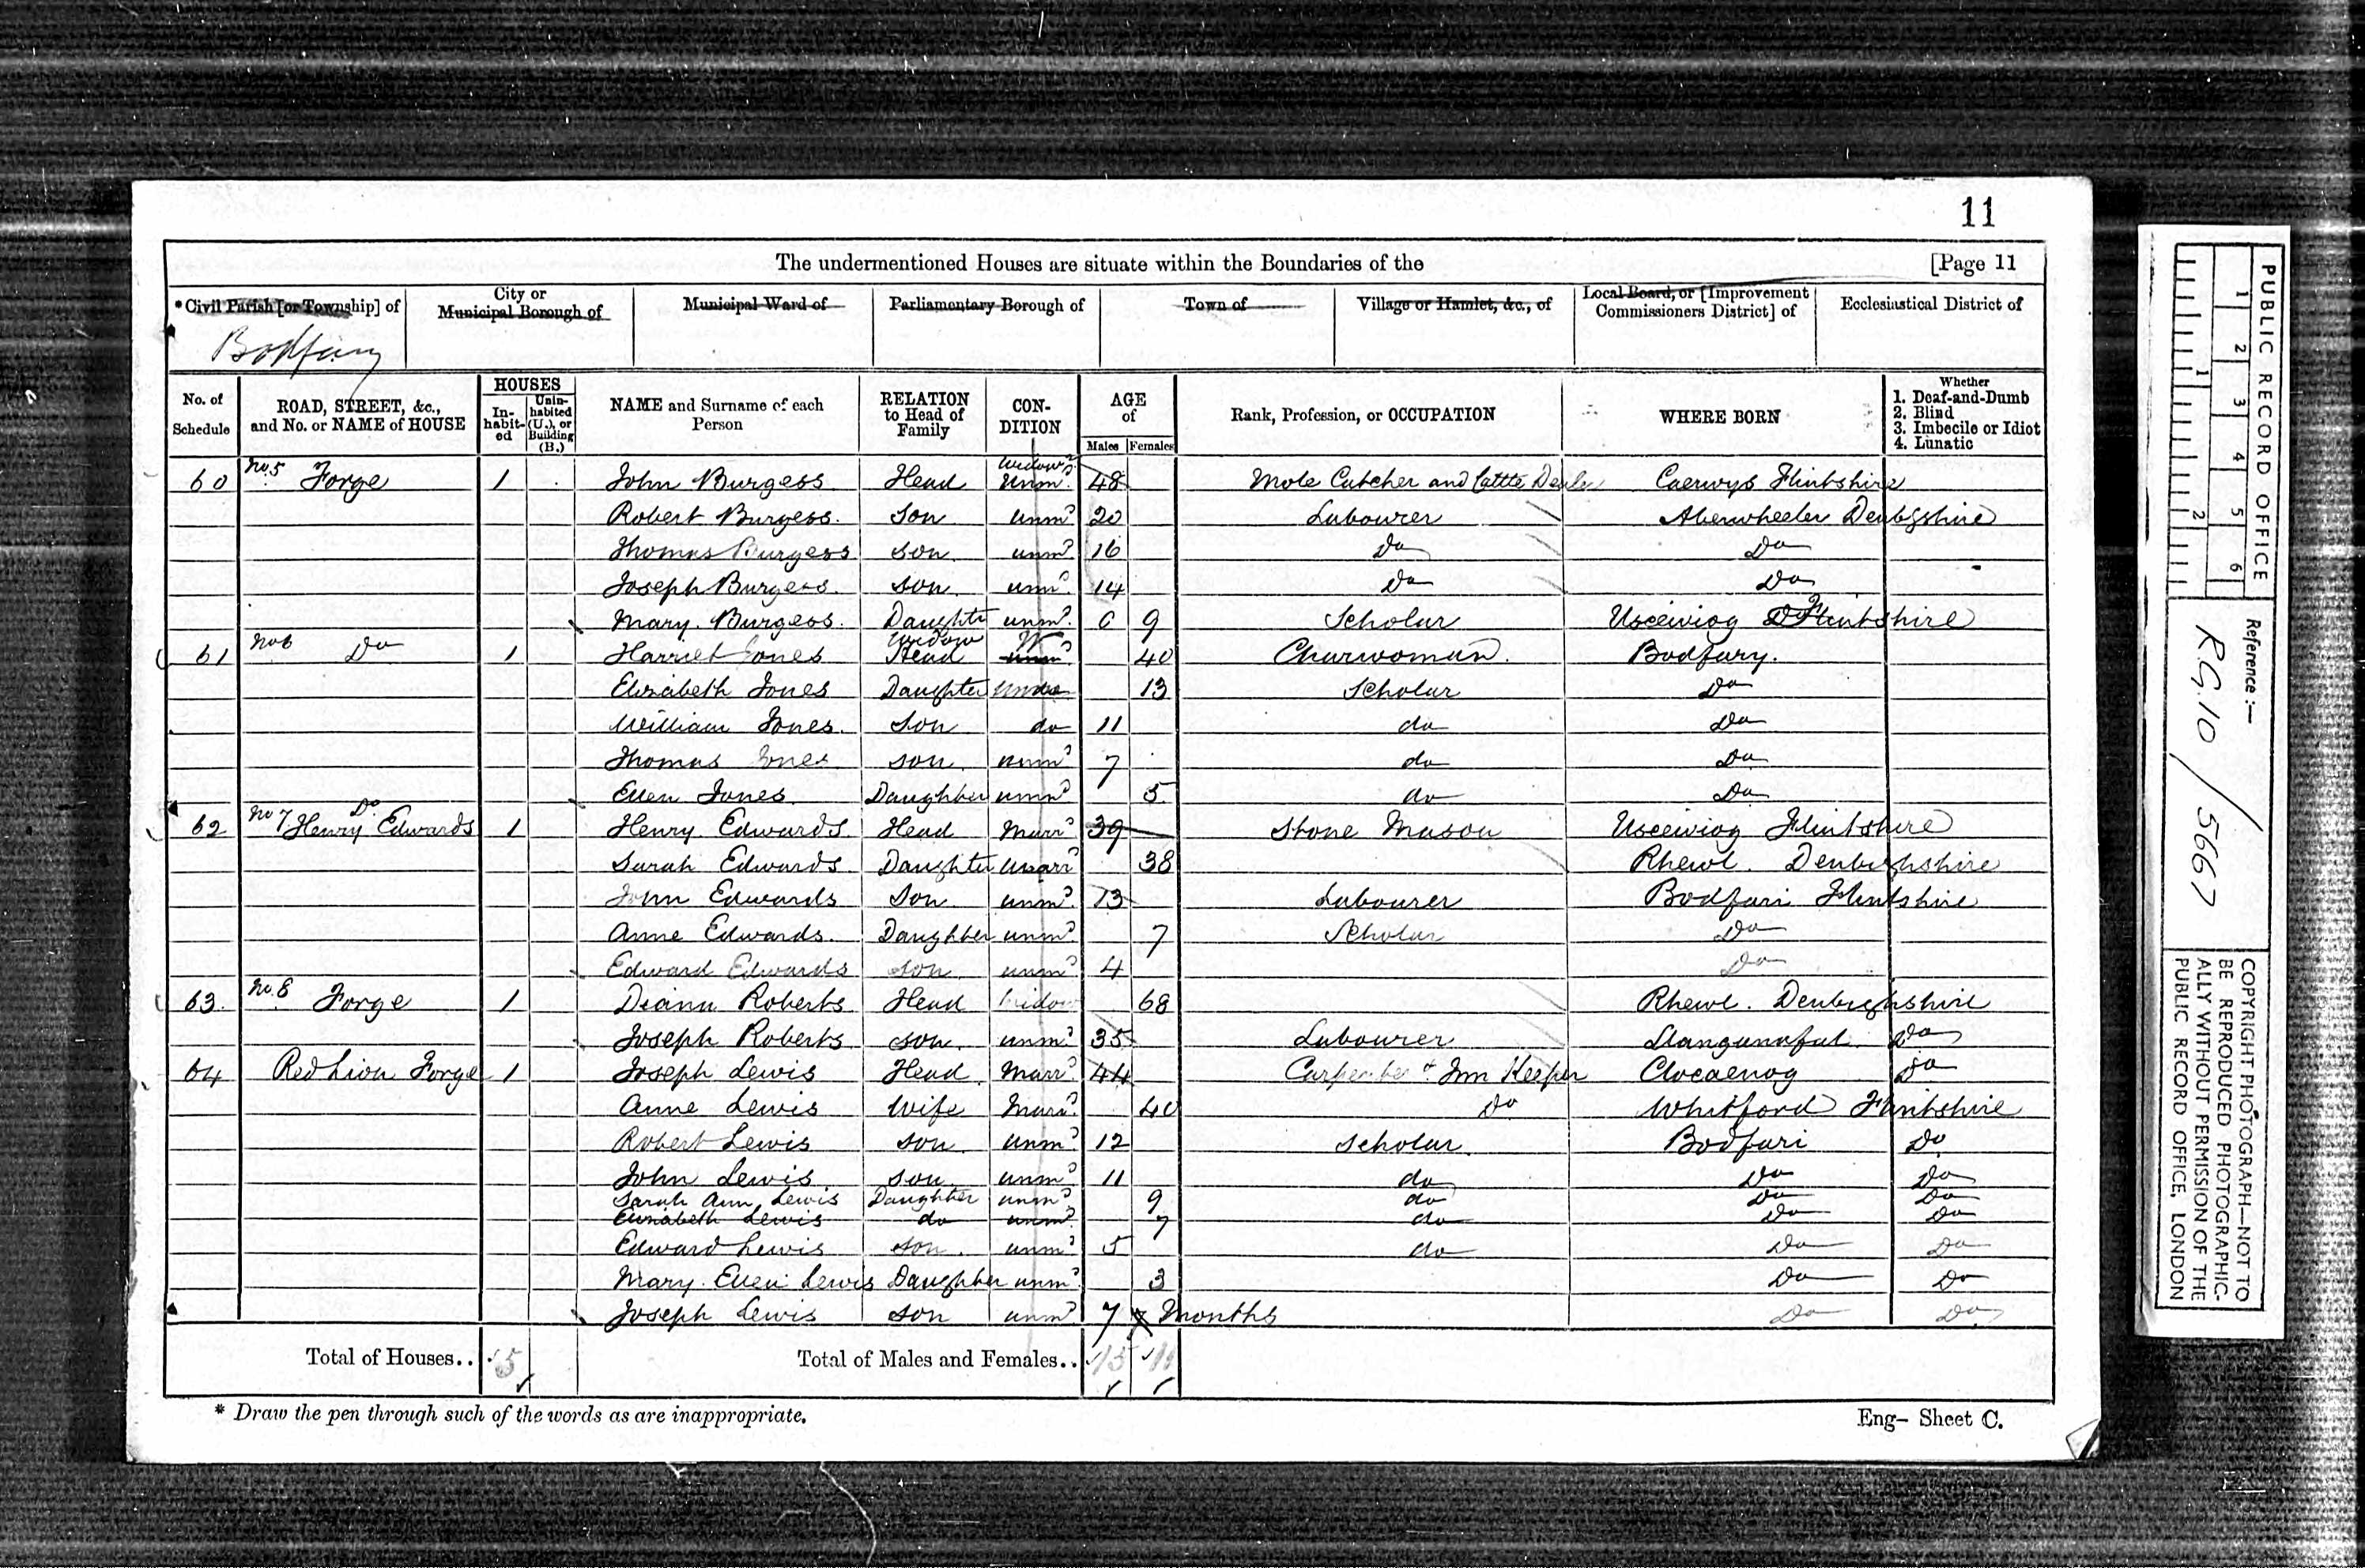 11
The undermentioned Houses are situate within the Boundaries of the [Page 11
*Civil Parish [or Township] of
City or Municipal Borough of
Municipal Ward of
Parliamentary Borough of
Town of
Village or Hamlet, &c., of
Local Board, or [Improvement Commissioners District] of
Ecclesiastical District of
Bodfary
No. of Schedule
ROAD, STREET, &c., and No. or NAME of HOUSE
HOUSES
In-habit-ed
Unin-habited (U.), or Building (B.)
NAME and Surname of each Person
RELATION to Head of Family
CON-DITION
AGE of
Males
Females
Rank, Profession, or OCCUPATION
WHERE BORN
Whether
1. Deaf-and-Dumb
2. Blind
3. Imbecile or Idiot
4. Lunatic
60 No. 5 Forge 1 John Burgess Head Widowr Unm. 48 Mole Catcher and Cattle Dealer Caerwys Flintshire
Robert Burgess. Son unmd 20 Labourer Aberwheeler Denbgshire
Thomas Burgess son unmd 16 Do Do
Joseph Burgess. son unmd 14 Do Do
Mary. Burgess. Daughter unmd. 9 Scholar Usceiviog Flintshire
61 No 6 Do 1 Harriet Jones Widow Head W unmd 40 Charwoman. Bodfary.
Elizabeth Jones Daughter 13 Scholar Do
William Jones. Son do 11 do Do
Thomas Jones son unmd 7 do Do
Ellen Jones. Daughter unmd 5 do Do
62 No 7 Do. Henry Edwards 1 Henry Edwards Head Marrd 39 Stone Mason Usceiviog Flintshire
Sarah Edwards Daughter 38 Rhewl. Denbighshire
John Edwards Son unmd. 13 Labourer Bodfari Flintshire
Anne Edwards. Daughter unmd. 7 Scholar Do
Edward Edwards son unmd 4 Do
63. No. 8 Forge 1 Diana Roberts Head Widow 68 Rhewl. Denbighshire
Joseph Roberts son. unmd 35 Labourer Do
64 Red Lion Forge 1 Joseph Lewis Head Marrd 44 Carpenter & Inn Keeper Clocaenog Do
Anne Lewis Wife Marrd. 40 Do Whitford Flintshire
Robert Lewis son unmd 12 Scholar. Bodfari Do
John Lewis son unmd 11 do Do Do
Sarah Ann Lewis Daughter unmd 9 do Do Do
Elizabeth Lewis do unmd 7 do Do Do
Edward Lewis son. unmd 5 do Do Do
Mary. Ellen Lewis Daughter unmd. 3 Do Do
Joseph Lewis son unmd 7 Months Do Do
Total of Houses.. 5
Total of Males and Females.. 15 11
* Draw the pen through such of the words as are inappropriate.
Eng- Sheet C.
PUBLIC RECORD OFFICE
1 2 3 4 5 6
1 2
Reference:—
RG.10 / 5667
COPYRIGHT PHOTOGRAPH—NOT TO
BE REPRODUCED PHOTOGRAPHIC-
ALLY WITHOUT PERMISSION OF THE
PUBLIC RECORD OFFICE, LONDON